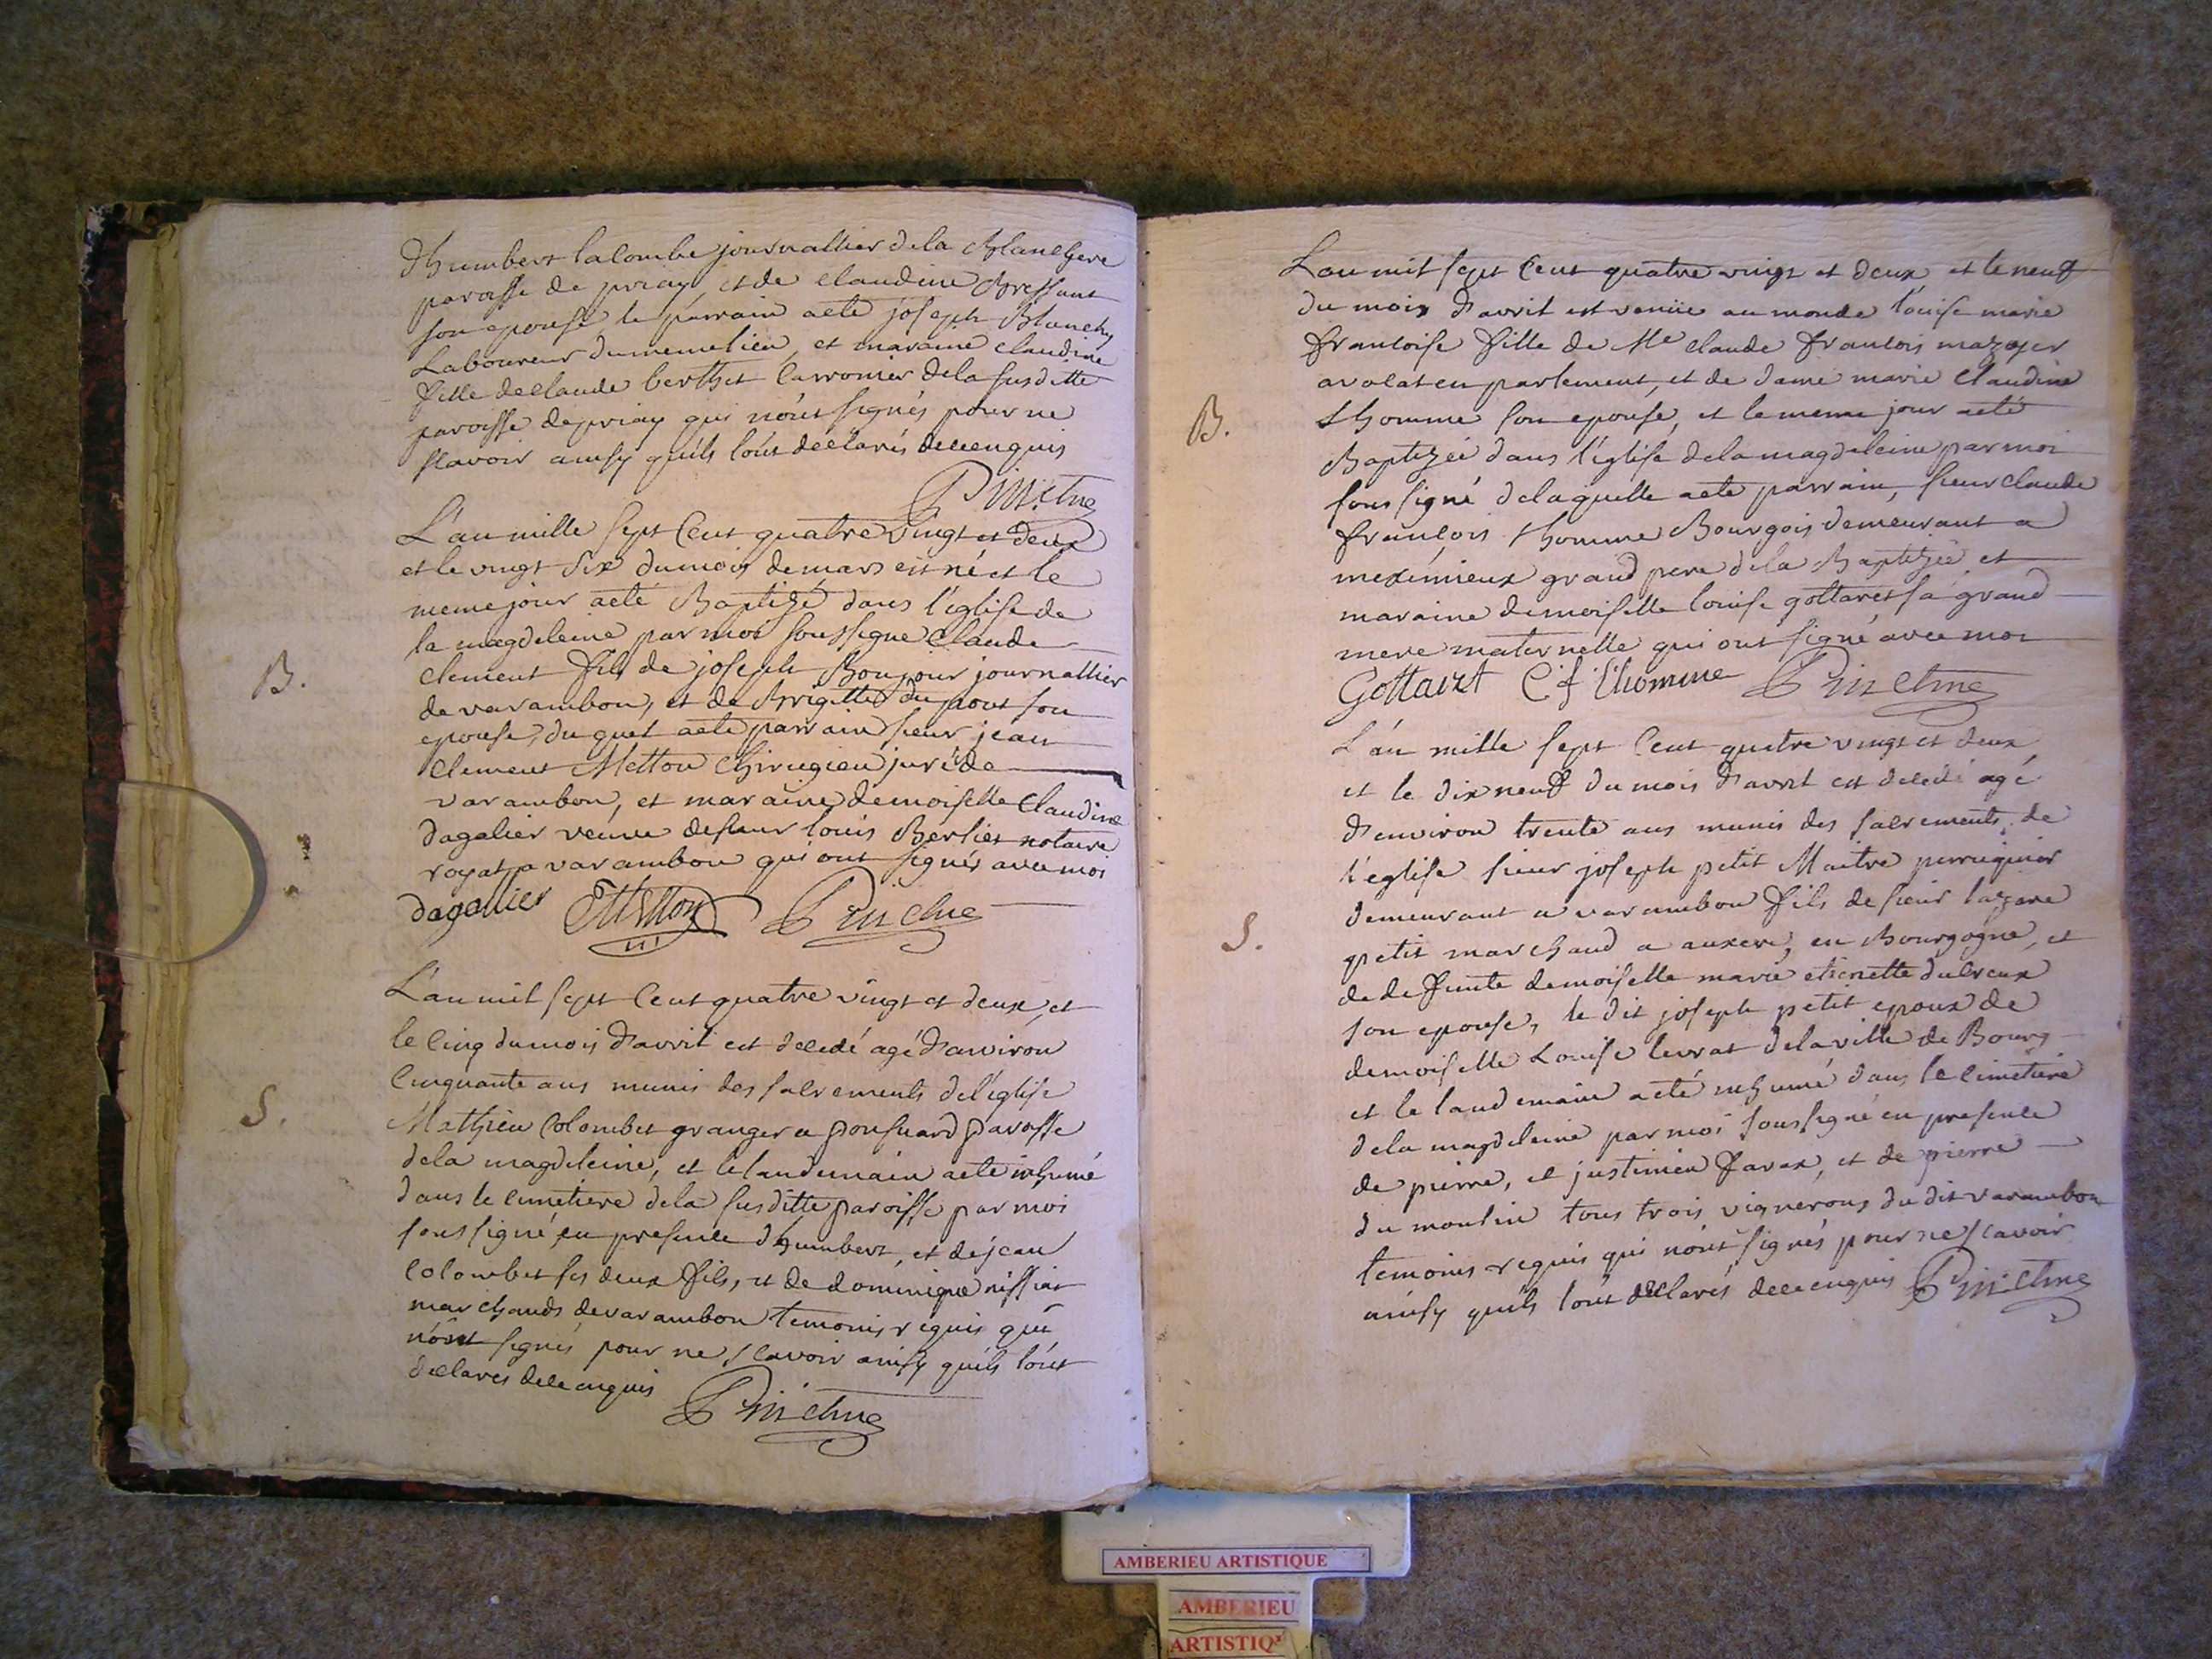 d'humbert lacombe journallier de la Blanchere
paroisse de priay, et de claudine Bressant
son epouse, le parrain a eté joseph Blanchy
Laboureur du meme lieu, et maraine claudine
fille de claude berthet carronier de la susditte
paroisse de priay qui n'ónt signés pour ne
scavoir ainsy qu'ils l'óut déclarés de ce enquis
L'an mille sept Cent quatre vingt et deux
et le vingt six du mois de mars est né et le
meme jour a eté Baptizé dans l'église de
la magdeleine par moi soussigné Claude
clement fils de joseph Bonjour journallier
de varambon, et de Brigitte du pont son
epouse, du quel a eté parrain sieur jean
Clement Metton chirugien juré de
varambon, et maraine demoiselle Claudine
dagalier veuve de sieur louis Berliet notaire
royal a varambon qui ont signés avec moi
dagallier Metton
B.
L'an mil sept Cent quatre vingt et deux, et
le cinq du mois d'avril est decedé agé d'anviron
Cinquante ans munis des sacrements de l'église
Mathieu Colombet granger a ponsuard paroisse
de la magdeleine, et le landemain a eté inhumé
dans le cimetiere de la susditte paroisse par moi
soussigné, en presence d'humbert, et de jean
colombet ses deux fils, et de dominique nissiat
marchands de varambon temoins requis qui
n'ónt signés pour ne scavoir ainsy qu'ils l'ónt
déclarés de ce enquis
S.
L'an mil sept Cent quatre vingt et deux et le neuf
du mois d'avril est venüe au monde louise marie
francoise fille de Me claude francois mazoyer
avocat en parlement, et de dame marie Claudine
thomme son epouse, et le meme jour a eté
Baptizée dans l'église de la magdeleine par moi
soussigné de laquelle a eté parrain, sieur claude
françois thomme Bourgois demeurant a
meximieux grand pere de la Baptizée et
maraine demoiselle louise gottaret sa grand
mere maternelle qui ont signé avec moi
Gottaret C f thomme
B.
L'án mille sept Cent quatre vingt et deux
et le dix neuf du mois d'avril est decedé agé
d'environ trente ans munis des sacrements de
l'église sieur joseph petit Maitre perruquier
demeurant a varambon fils de sieur lazare
petit marchand a auxere, en Bourgogne, et
de defunte demoiselle marie etienette ducreux
son epouse, le dit joseph petit epoux de
demoiselle Louise levrat de la ville de Bourg
et le landemain a eté inhumé dans le cimetiere
de la magdeleine par moi soussigné en presence
de pierre, et justinien favax, et de pierre
du moulin tous trois vignerons du dit varambon
temoins requis qui n'ónt signés pour ne scavoir
ainsy qu'ils l'ónt déclarés de ce enquis
S.
AMBERIEU ARTISTIQUE
AMBERIEU
ARTISTIQ